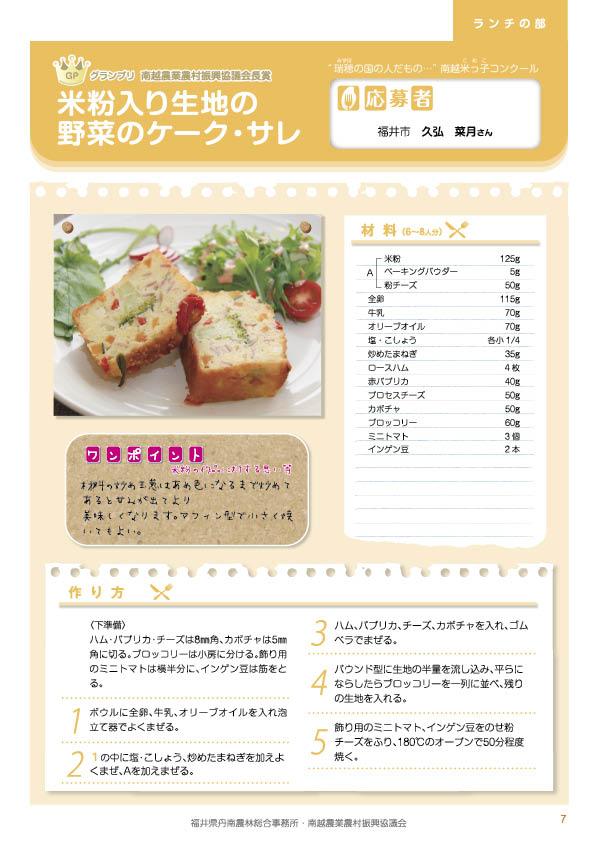 ランチの部
GP グランプリ 南越農業農村振興協議会長賞
米粉入り生地の
野菜のケーク・サレ
みずほ こめこ
“瑞穂の国の人だもの…” 南越米っ子コンクール
応募者
福井市 久弘 菜月さん
材料(6〜8人分)
A
米粉 125g
ベーキングパウダー 5g
粉チーズ 50g
全卵 115g
牛乳 70g
オリーブオイル 70g
塩・こしょう 各小1/4
炒めたまねぎ 35g
ロースハム 4枚
赤パプリカ 40g
プロセスチーズ 50g
カボチャ 50g
ブロッコリー 60g
ミニトマト 3個
インゲン豆 2本
ワンポイント
米粉の作品に対する思い等
材料の炒め玉葱はあめ色になるまで炒めて
あると甘みが出てより
美味しくなります。マフィン型で小さく焼
いてもよい。
作り方
〈下準備〉
ハム・パプリカ・チーズは8㎜角、カボチャは5㎜
角に切る。ブロッコリーは小房に分ける。飾り用
のミニトマトは横半分に、インゲン豆は筋をと
る。
1 ボウルに全卵、牛乳、オリーブオイルを入れ泡
立て器でよくまぜる。
2 1の中に塩・こしょう、炒めたまねぎを加えよ
くまぜ、Aを加えまぜる。
3 ハム、パプリカ、チーズ、カボチャを入れ、ゴム
ベラでまぜる。
4 パウンド型に生地の半量を流し込み、平らに
ならしたらブロッコリーを一列に並べ、残り
の生地を入れる。
5 飾り用のミニトマト、インゲン豆をのせ粉
チーズをふり、180℃のオーブンで50分程度
焼く。
福井県丹南農林総合事務所・南越農業農村振興協議会
7